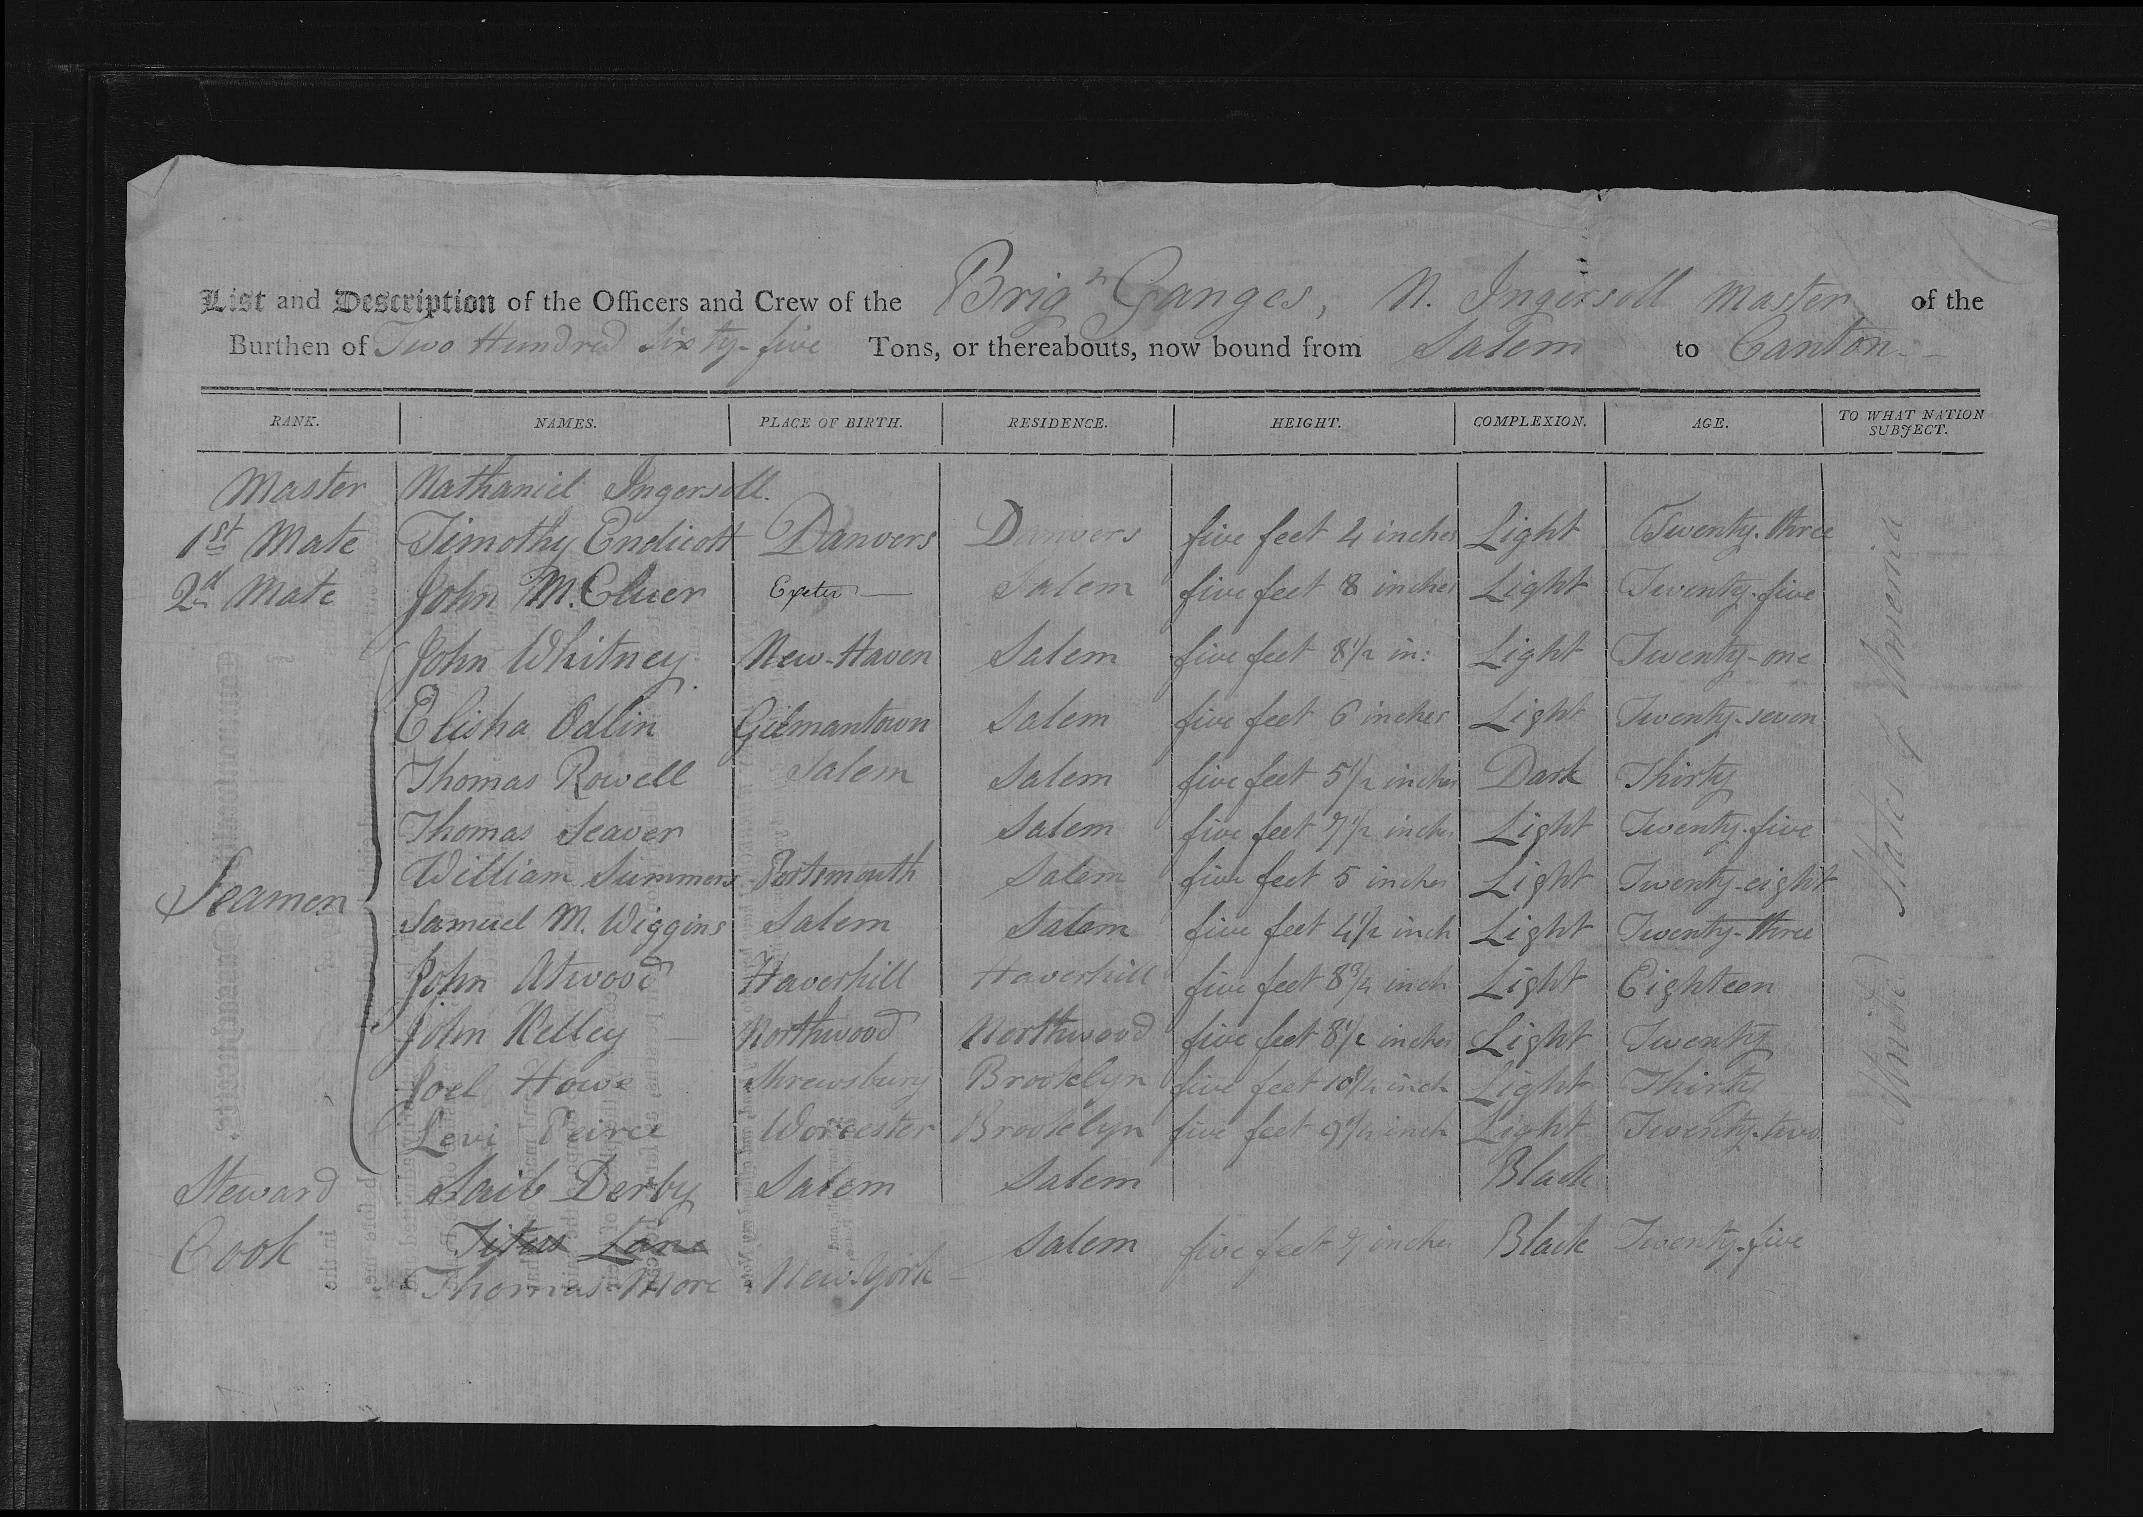 List and Description of the Officers and Crew of the Brig Ganges, N. Ingersoll Master of the
Burthen of Two Hundred Sixty-five Tons, or thereabouts, now bound from Salem to Canton
RANK. NAMES. PLACE OF BIRTH. RESIDENCE. HEIGHT. COMPLEXION. AGE. TO WHAT NATION SUBJECT.
Master Nathaniel Ingersoll.
1st Mate Timothy Endicott Danvers Danvers five feet 4 inches Light Twenty-three
2d Mate John M.Cluer Exeter — Salem five feet 8 inches Light Twenty-five
John Whitney New-Haven Salem five feet 8 1/2 in: Light Twenty-one
Elisha Odlin Gilmantown Salem five feet 6 inches Light Twenty-seven
Thomas Rowell Salem Salem five feet 5 1/2 inches Dark Thirty
Thomas Seaver Salem five feet 7 1/2 inches Light Twenty-five
Seamen William Summers Portsmouth Salem five feet 5 inches Light Twenty-eight
Samuel M. Wiggins Salem Salem five feet 4 1/2 inch Light Twenty-three
John Atwood Haverhill Haverhill five feet 8 3/4 inch Light Eighteen
John Kelley Northwood Northwood five feet 8 1/2 inches Light Twenty
Joel Howe Shrewsbury Brooklyn five feet inch Light Thirty
Levi Peirce Worcester Brooklyn five feet inch Light Twenty-two
Steward Saib Derby Salem Salem Black
Cook Titus Lane Salem five feet 7 inches Black Twenty-five
Thomas More New-York
United States of America